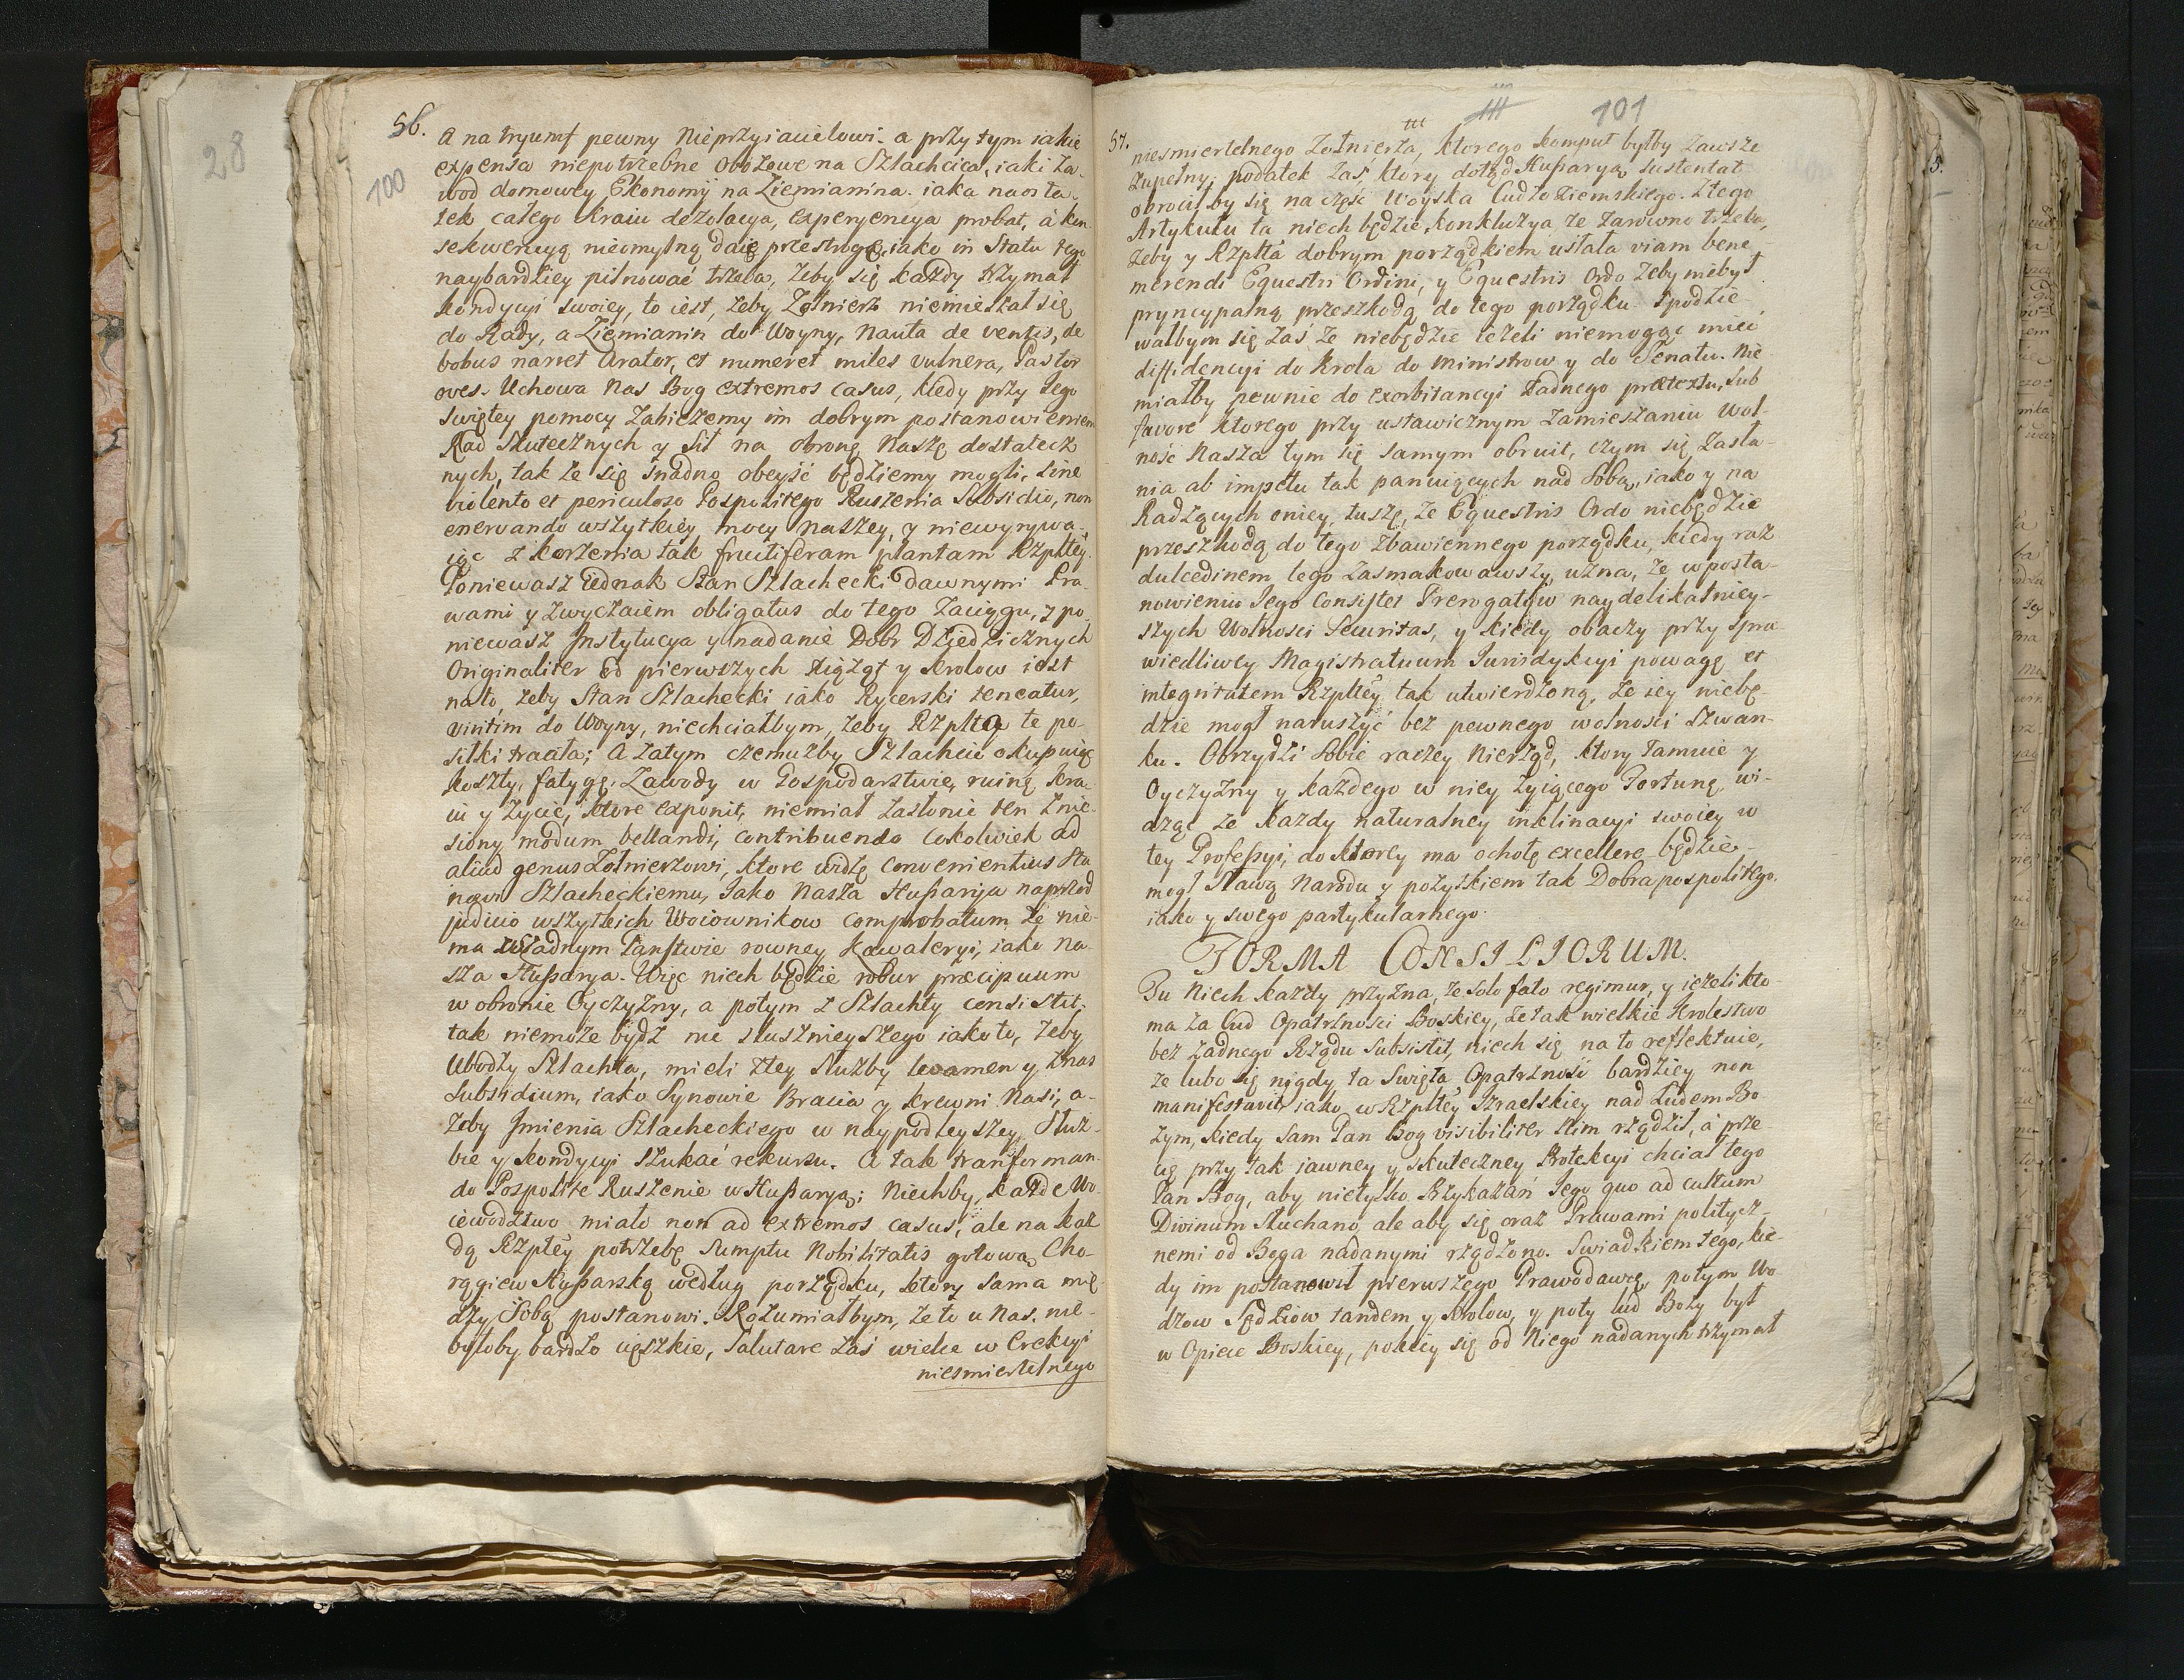 28
56.
100
A na tryumf pewny Nieprzyiacielowi. a przy tym iakie
expensa niepotrzebne obozowe na Szlachcica, iaki za-
wod domowey Ekonomij na Ziemianina. iaka na osta-
tek całego kraiu dezolacya, experyencya probat, á kon-
sekwencyą nieomylną daię przestrogę, iako in Statu tego
naybardziey pilnować trzeba, żeby się każdy trzymał
kondycyi swoiey, to iest, żeby Żołnierz niemieszał się
do Rady, a Ziemianin do Woyny, Nauta de ventis, de
bobus narret Arator, et numeret miles vulnera, Pastor
oves. Uchowa Nas Bog extremos casus, kiedy przy Jego
Swiętey pomocy zabieżemy im dobrym postanowieniem
Rad skutecznych y Sił na obronę Naszę dostatecz
nych, tak że się snadno obeyść będziemy mogli, sine
violento et periculoso Pospolitego Ruszenia Subsidio, non
enervando wszytkiey mocy naszey, y niewyrywa-
iąc z korzenia tak fructiferam plantam Rzpltey.
Poniewasz iednak Stan Szlachecki dawnymi Pra-
wami y zwyczaiem obligatus do tego zaciągu, y po-
niewasz Instytucya y nadanie Dobr Dziedzicznych
Originaliter od pierwszych Xiążąt y Krolow iest
nato, żeby Stan Szlachecki iako Rycerski teneatur,
viritim do Woyny, niechciałbym, żeby Rzplta te po-
siłki traciła; A zatym czemużby Szlachcic okupuiąc
koszty, fatygę, Zawody w Gospodarstwie, ruinę kra-
iu y życie, ktore exponit, niemiał zasłonić ten znie-
siony modum bellandi, contribuendo cokolwiek ad
aliud genus Żołnierzowi, ktore widzę convenientius Sta
nowi Szlacheckiemu, Jako Nasza Hussarya naprzod
judicio wszytkich Woiownikow comprobatum że nie-
ma w żadnym Państwie rowney Kawaleryi, iako na-
sza Hussarya. Więc niech będzie robur præcipuum
w obronie Oyczyzny, a potym z Szlachty consistit,
tak niemoże bydź nic słusznieyszego iako to, żeby
Ubodzy Szlachta, mieli ztey służby levamen y znas
Subsidium, iako Synowie Bracia y Krewni Nasi, a-
żeby Imienia Szlacheckiego w naypodleyszey Służ-
bie y kondycyi szukać rekursu. A tak tranforman-
do Pospolite Ruszenie w Hussaryą; Niechby każde Wo-
iewodztwo miało non ad extremos casus, ale na każ
dą Rzpltey potrzebę Sumptu Nobilitatis gotową Cho-
rągiew Hussarską według porządku, ktory sama mię
dzy Sobą postanowi. Rozumiałbym, że to u Nas nie-
byłoby bardzo cięszkie, Salutare zaś wielce w Erekcyi
niesmiertelnego
57.
111
101
niesmiertelnego Żołnierza, ktorego komput byłby zawsze
zupełny; podatek zaś, ktory dotąd Hussaryą sustentat
obrociłby się na część Woyska Cudzoziemskiego. Ztego
Artykułu ta niech będzie konkluzya że zarowno trzeba,
żeby y Rzplta dobrym porządkiem ustała viam bene
merendi Equestri Ordini, y Equestris Ordo żeby niebył
pryncypalną przeszkodą do tego porządku. Spodzie
wałbym się zaś że niebędzie ieżeli niemogąc mieć
diffidencyi do Krola do Ministrow y do Senatu. Nie
miałby pewnie do exorbitancyi żadnego prætextu, Sub
favore ktorego przy ustawicznym zamieszaniu Wol-
ność Nasza tym się samym obruit, czym się zasła-
nia ab impetu tak panuiących nad Sobą, iako y na
Radzących oniey, tuszę, że Equestris Ordo niebędzie
przeszkodą do tego zbawiennego porządku, kiedy raz
dulcedinem tego zasmakowawszy, uzna, że w posta-
nowieniu Jego Consistet Prerogatyw naydelikatniey-
szych Wolnosci Securitas, y kiedy obaczy przy spra
wiedliwey Magistratuum Jurisdykcyi powagę et
integritatem Rzpltey tak utwierdzoną, że iey niebę-
dzie mogł naruszyć bez pewnego wolnosci szwan-
ku. Obrzydzi Sobie raczey Nierząd, ktory tamuie y
Oyczyzny y każdego w niey żyiącego Fortunę, wi-
dząc że każdy naturalney inklinacyi swoiey w
tey Professyi, do ktorey ma ochotę excellere, będzie
mogł Sławą Narodu y pożytkiem tak Dobra pospolitego.
iako y swego partykularnego.
FORMA CONSILIORUM.
Tu Niech każdy przyzna, że solo fato regimur, y ieżeli kto
ma za Cud Opatrznosci Boskiey, że tak wielkie Krolestwo
bez żadnego Rządu Subsistit, niech się na to reflektuie,
że lubo się nigdy ta Swięta Opatrzność bardziey non
manifestavit, iako w Rzpltey Izraelskiey nad Ludem Bo-
żym, kiedy Sam Pan Bog visibiliter Nim rządził, á prze-
cię przy tak iawney y skuteczney Protekcyi chciał tego
Pan Bog, aby nietylko Przykazań Jego quo ad cultum
Divinum słuchano, ale aby się oraz Prawami politycz-
nemi od Boga nadanymi rządzono. Swiadkiem tego, kie-
dy im postanowił pierwszego Prawodawcę, potym Wo
dzow Sędziow tandem y Krolow, y poty lud Boży był
w Opiece Boskiey, pokiey się od Niego nadanych trzymał